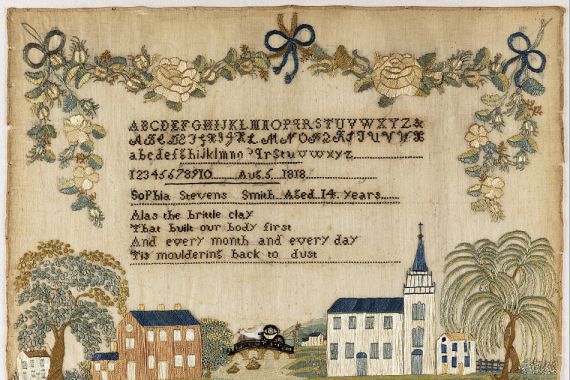 ABCDEFGHIJKLMNOPQRSTUVWXYZ&
abcdefghijklmno PqrstuvwxyZ
12345678910 Aug. 5 1818
SoPhia Stevens Smith Aged 14 years
Alas the brittle clay
That built our body first
And every month and every day
Tis mouldering back to dust